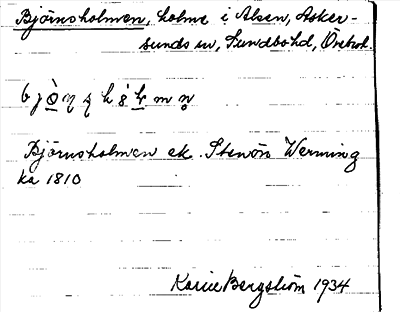 Björnsholmen, holme i Alsen, Asker-
sunds sn, Sundbohd, Örebrol.
Björnsholmen ek. Stenön Werming
ka 1810
Karin Bergström 1934